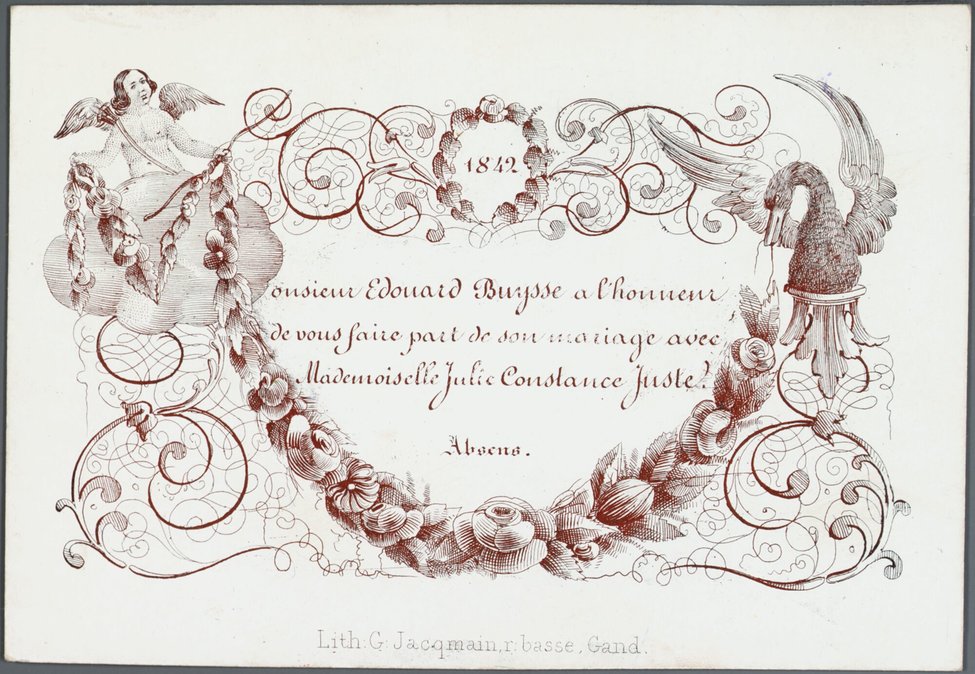 1842
onsieur Edouard Buysse a l'honneur
de vous faire part de son mariage avec
Mademoiselle Julie Constance Juste.
Absens.
Lith: G: Jacqmain, r: basse, Gand.